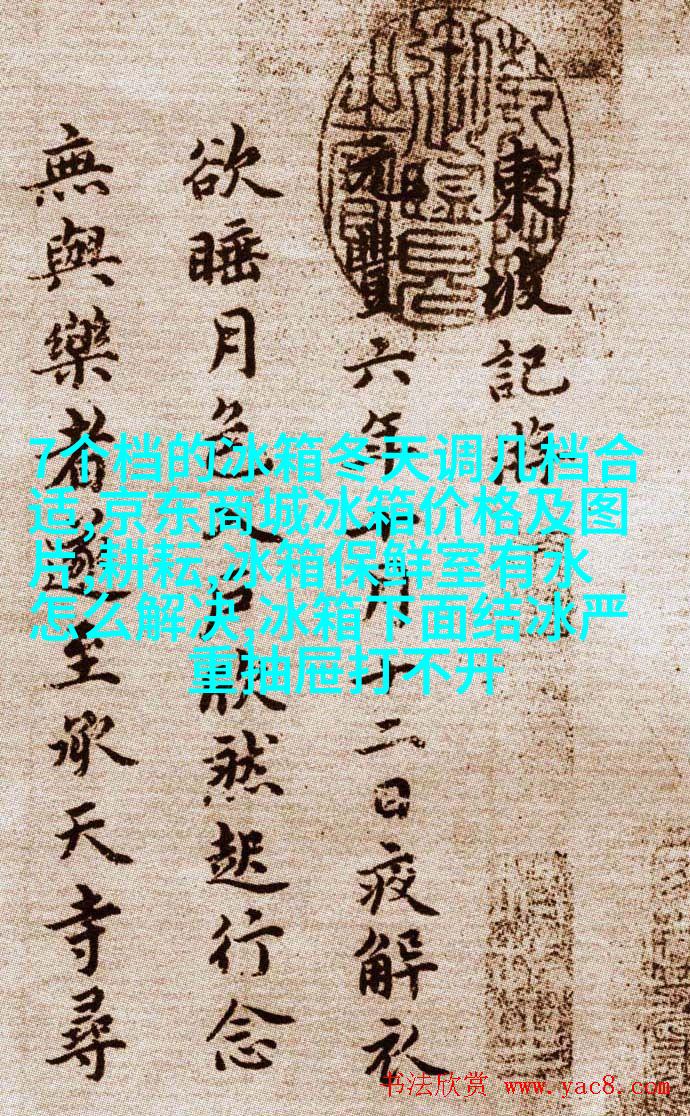 東坡記
元豐六年十月十二日夜解衣
欲睡月色入戶欣然起行念
無與樂者遂至承天寺尋
7个档的冰箱冬天调几档合
适,京东商城冰箱价格及图
片,耕耘,冰箱保鲜室有水
怎么解决,冰箱下面结冰严
重抽屉打不开
书法欣赏 www.yac8.com